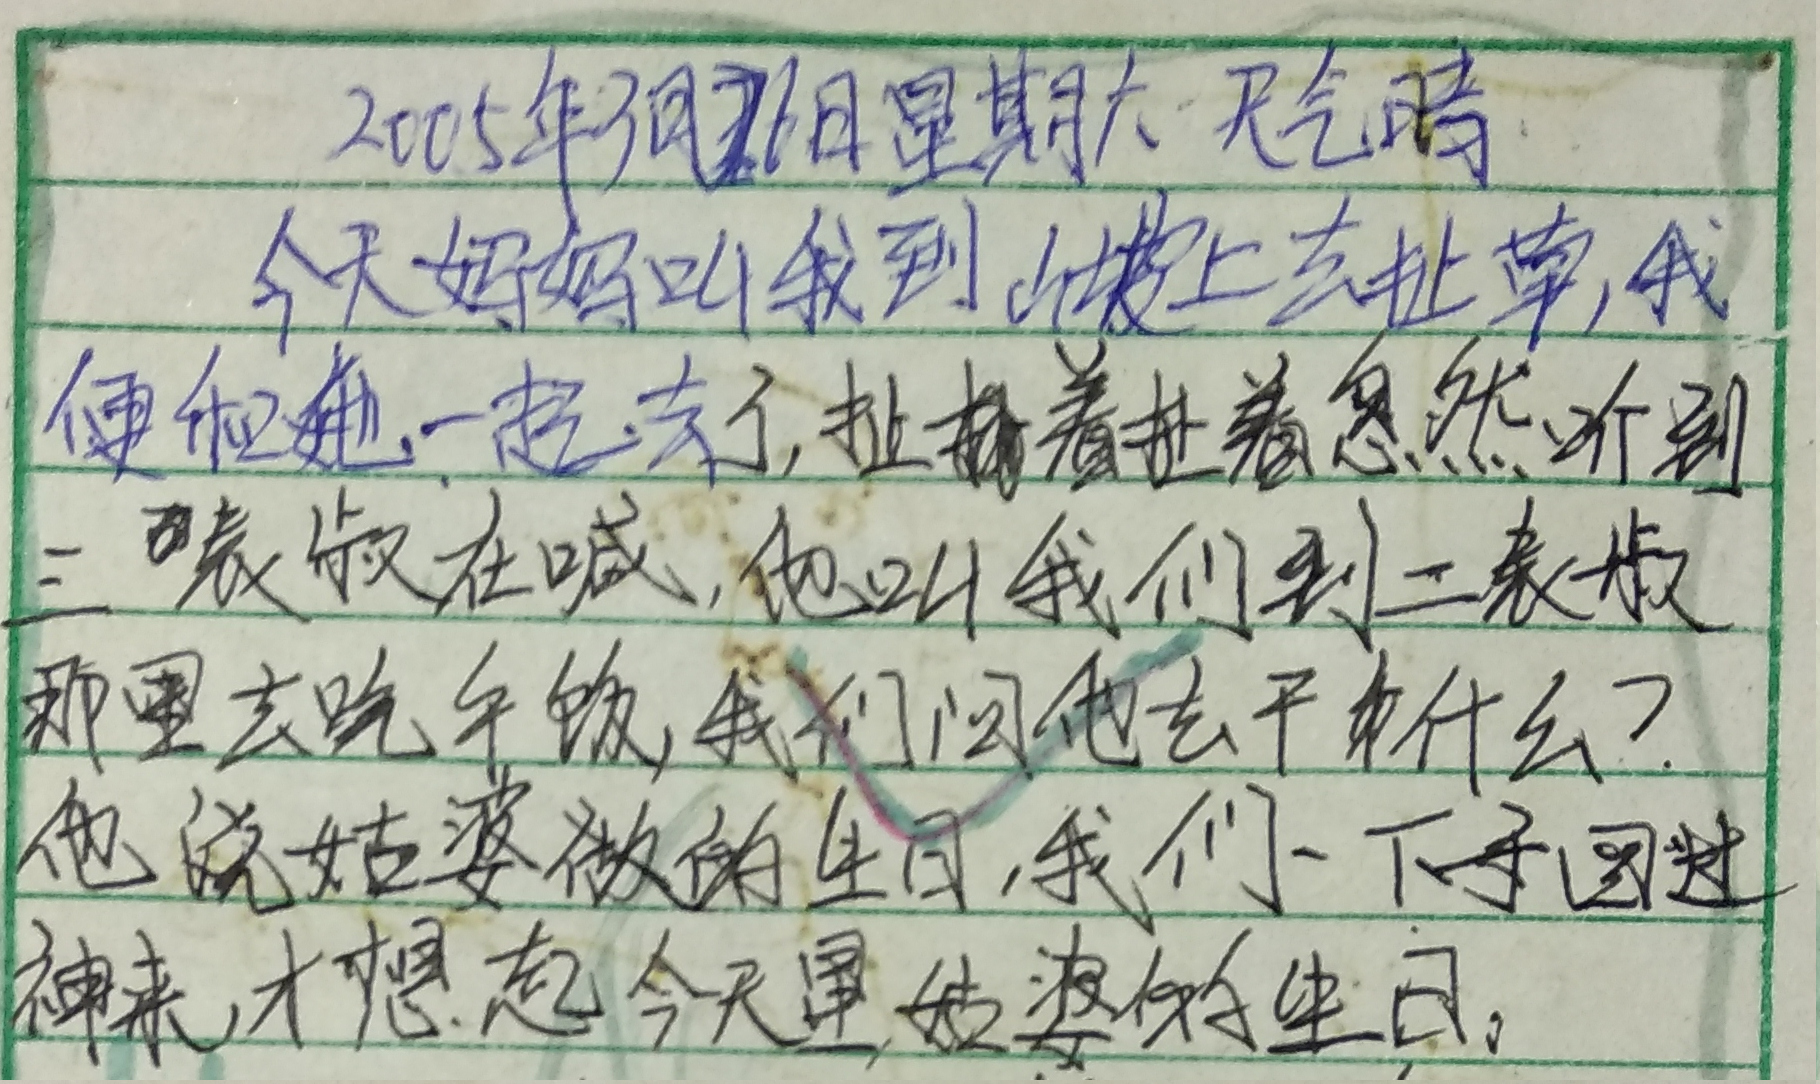 2005年3月26日星期六 天气晴
今天妈妈叫我到山坡上去扯草,我
便和她一起去了,扯着扯着忽然听到
三表叔在喊,他叫我们到二表叔
那里去吃午饭,我们问他去干什么?
他说姑婆做的生日,我们一下子回过
神来,才想起今天是姑婆的生日。